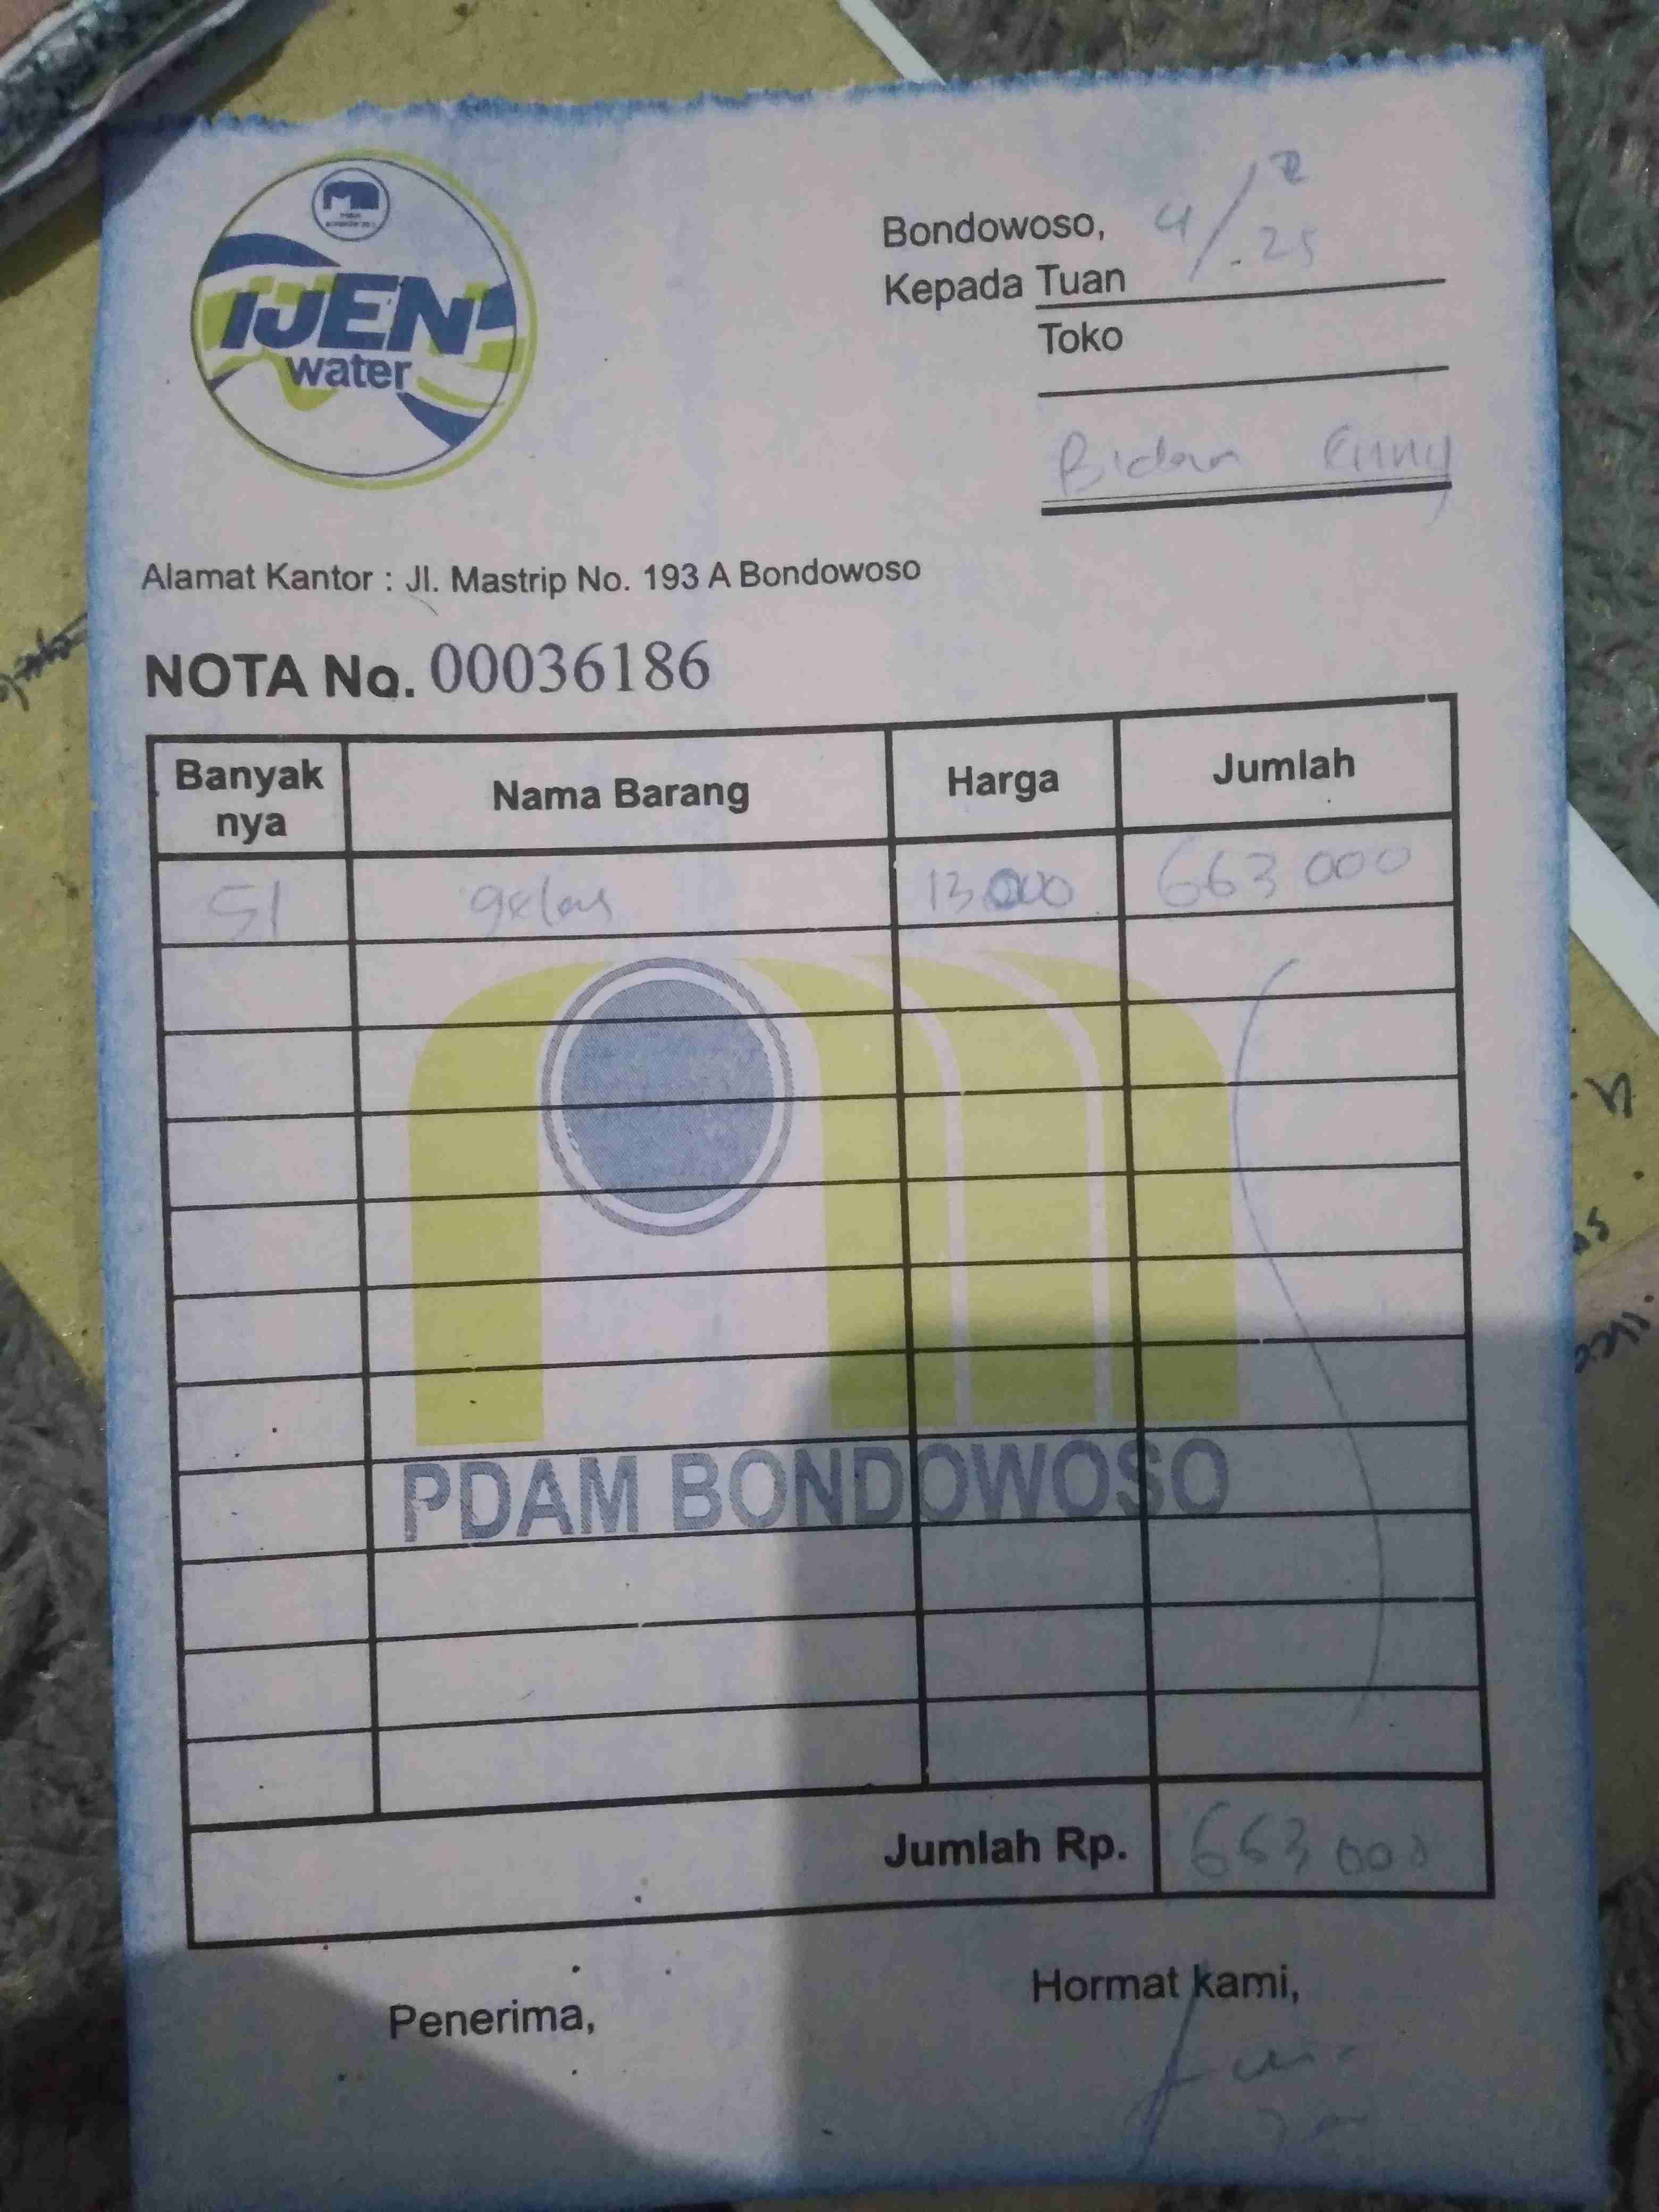 IJEN
water
Bondowoso, 4/2.25
Kepada Tuan
Toko
Bidan Enny
Alamat Kantor : Jl. Mastrip No. 193 A Bondowoso
NOTA No. 00036186
Banyak nya Nama Barang Harga Jumlah
51 gelas 13.000 663 000
PDAM BONDOWOSO
Jumlah Rp. 663 000
Penerima, Hormat kami,